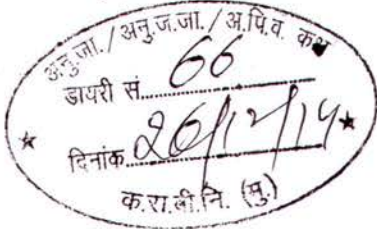 अनु.जा./अनु.ज.जा./अ.पि.व. कक्ष
डायरी सं. 66
दिनांक 26/12/14
क.रा.बी.नि. (मु.)